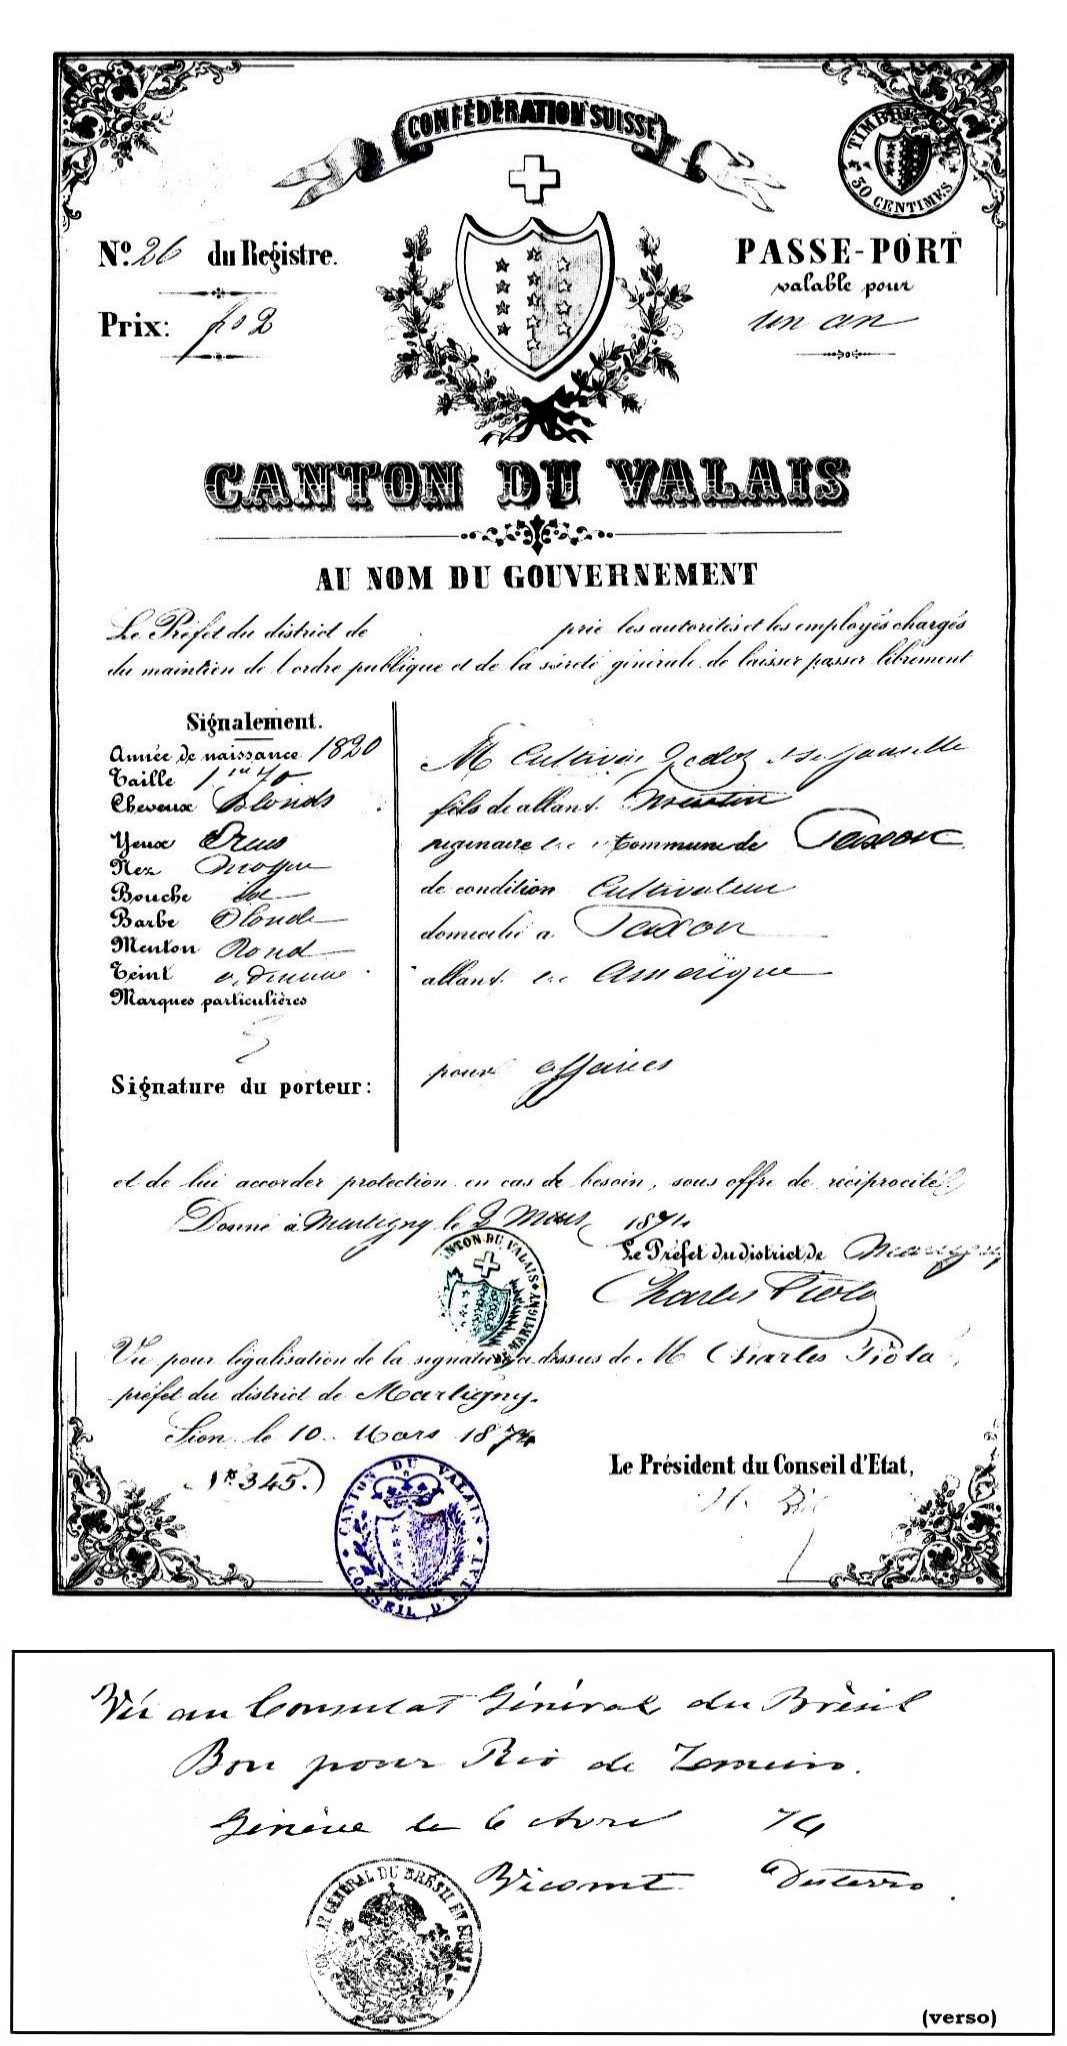 CONFÉDÉRATION SUISSE
TIMBRE
30 CENTIMES
Nº. 26 du Registre.
Prix: frs 2
PASSE-PORT
valable pour
un an
CANTON DU VALAIS
AU NOM DU GOUVERNEMENT
Le Préfet du district de prie les autorités et les employés chargés
du maintien de l'ordre publique et de la sûreté générale de laisser passer librement
Signalement.
Année de naissance 1820
Taille 1m 70
Cheveux Blonds
Yeux
Nez moyen
Bouche id
Barbe Blonde
Menton Rond
Teint
Marques particulières
Signature du porteur:
M
fils de
Commune de Saxon
de condition Cultivateur
domicilié a Saxon
allant en Amérique
pour affaires
et de lui accorder protection en cas de besoin, sous offre de réciprocité
Donné à Martigny le 2 Mars 1874
Le Préfet du district de Martigny
Charles Fiola
CANTON DU VALAIS MARTIGNY
Vu pour légalisation de la signature ci dessus de M Charles Fiola,
préfet du district de Martigny.
Sion le 10 Mars 1874
Nº 345.)
Le Président du Conseil d'Etat,
CANTON DU VALAIS
CONSEIL D'ETAT
Vu au Consulat Général du Brésil
Bon pour Rio de Janeiro.
Genève le 6 Avril 74
Vicomte
GÉNÉRAL DU BRÉSIL EN SUISSE
(verso)